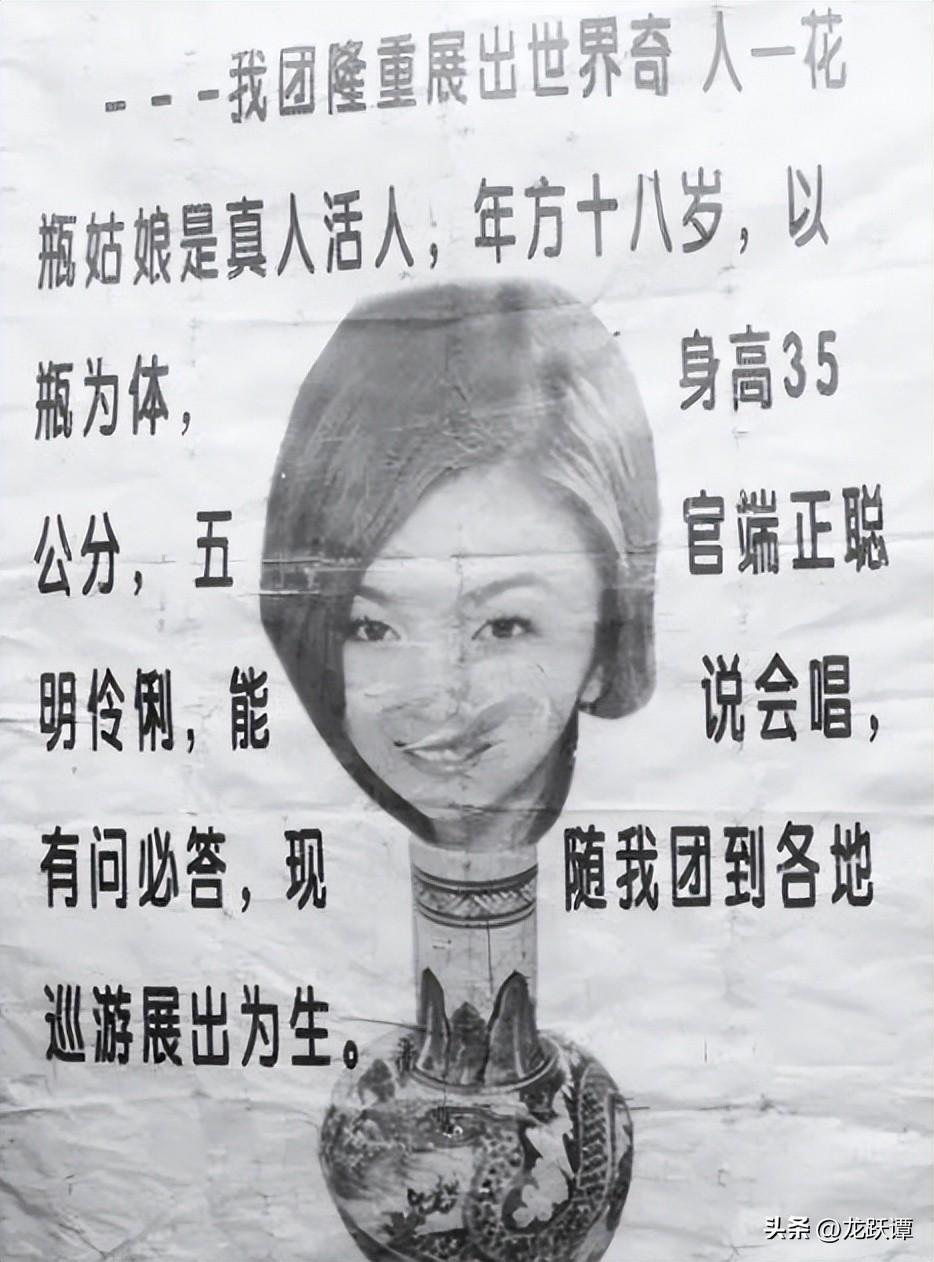 ---我团隆重展出世界奇人一花
瓶姑娘是真人活人，年方十八岁，以
瓶为体，身高35
公分，五官端正聪
明伶俐，能说会唱，
有问必答，现随我团到各地
巡游展出为生。
头条 @龙跃谭